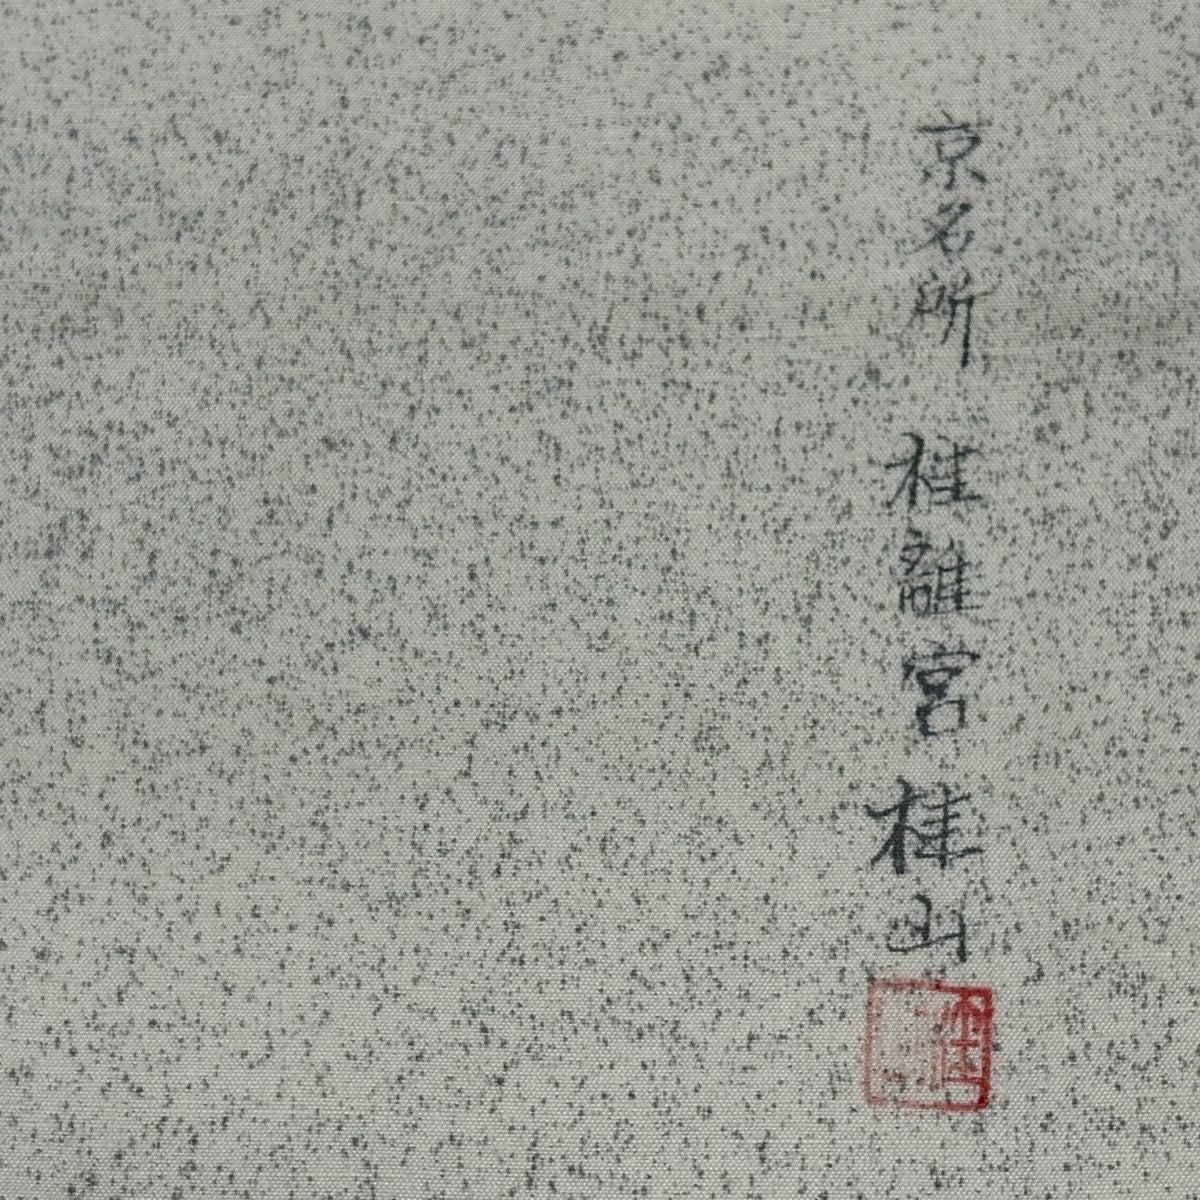 京名所 桂離宮 桂山